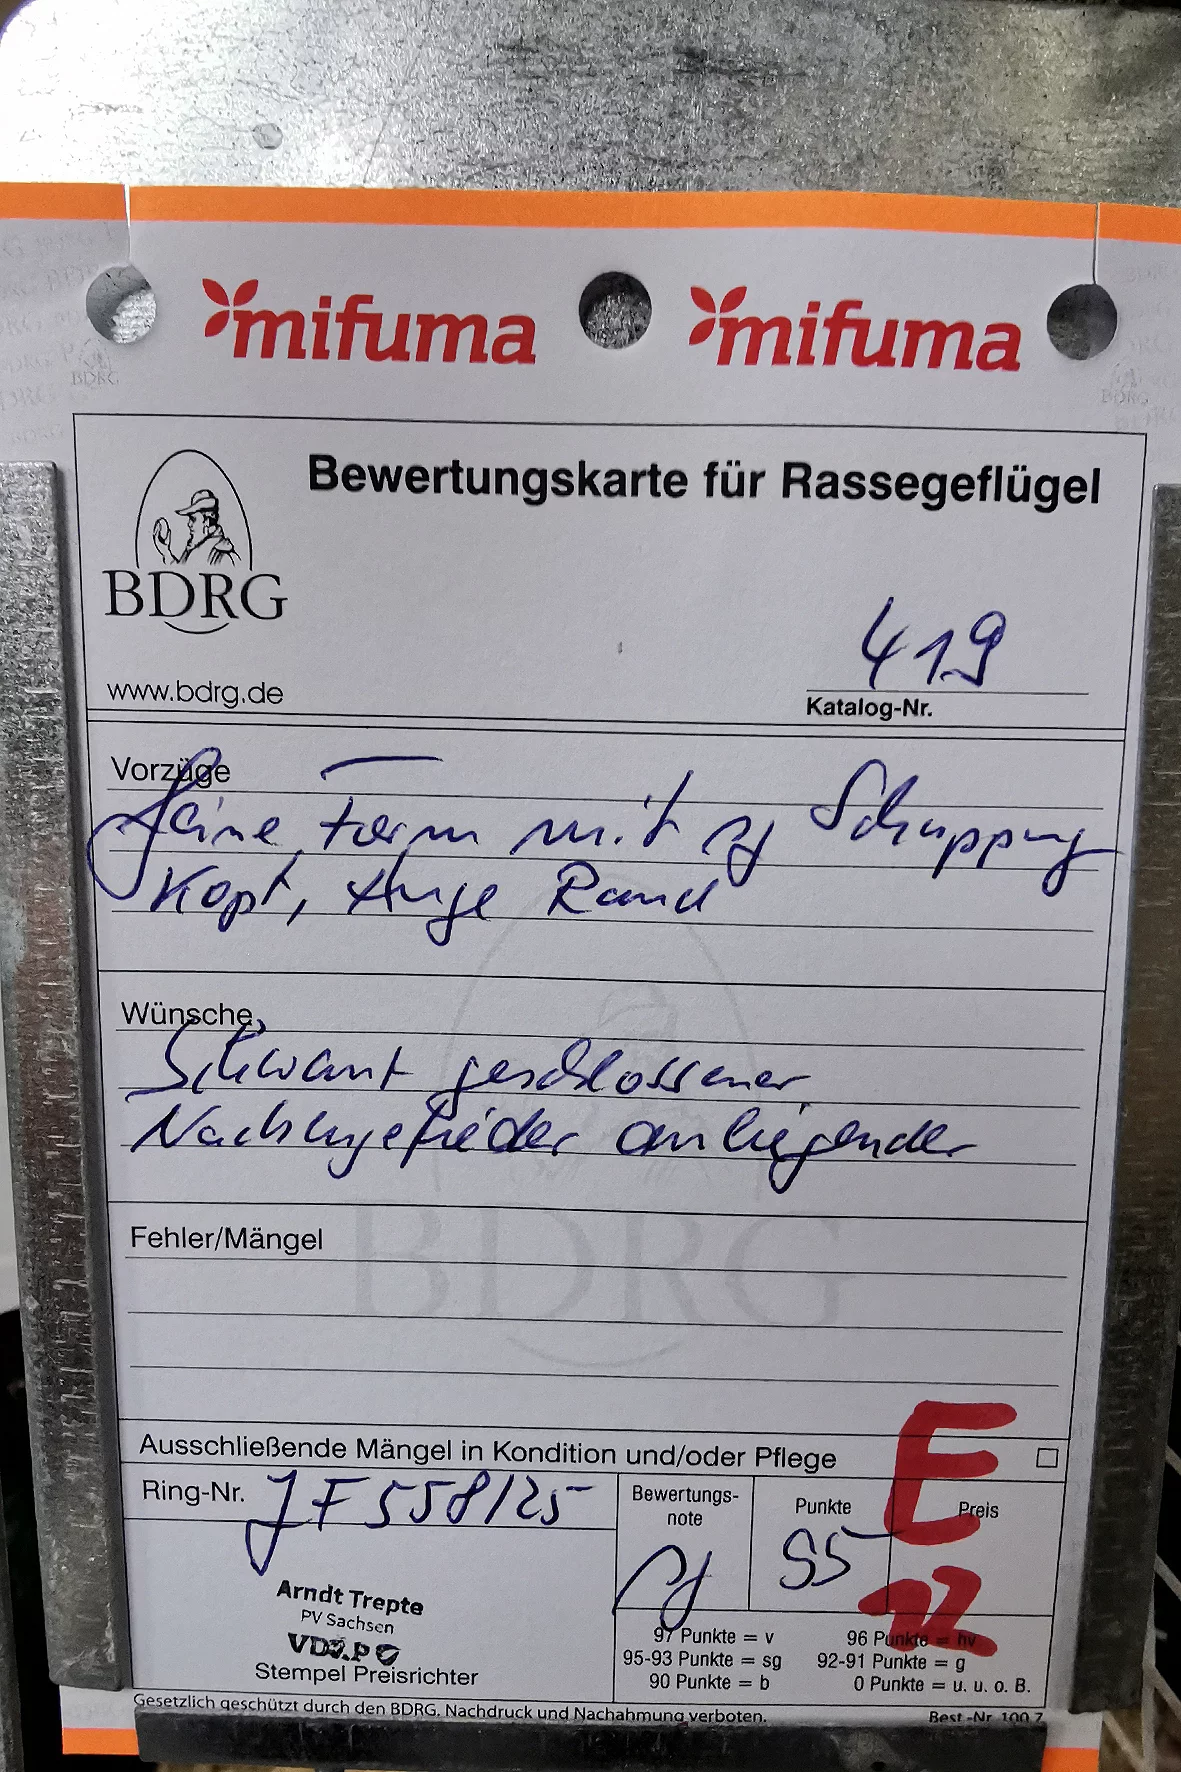 mifuma mifuma
Bewertungskarte für Rassegeflügel
BDRG
www.bdrg.de
419
Katalog-Nr.
Vorzüge
feine Form mit sg Schuppung
Kopf, Auge Rand
Wünsche
Schwanz geschlossener
anliegender
Fehler/Mängel
BDRG
Ausschließende Mängel in Kondition und/oder Pflege
Ring-Nr. JF 558/25
Bewertungs-
note
sg
Punkte
95
Preis
E
Arndt Trepte
PV Sachsen
Stempel Preisrichter
97 Punkte = v 96 Punkte = hv
95-93 Punkte = sg 92-91 Punkte = g
90 Punkte = b 0 Punkte = u. u. o. B.
Gesetzlich geschützt durch den BDRG. Nachdruck und Nachahmung verboten. Best.-Nr. 100 7